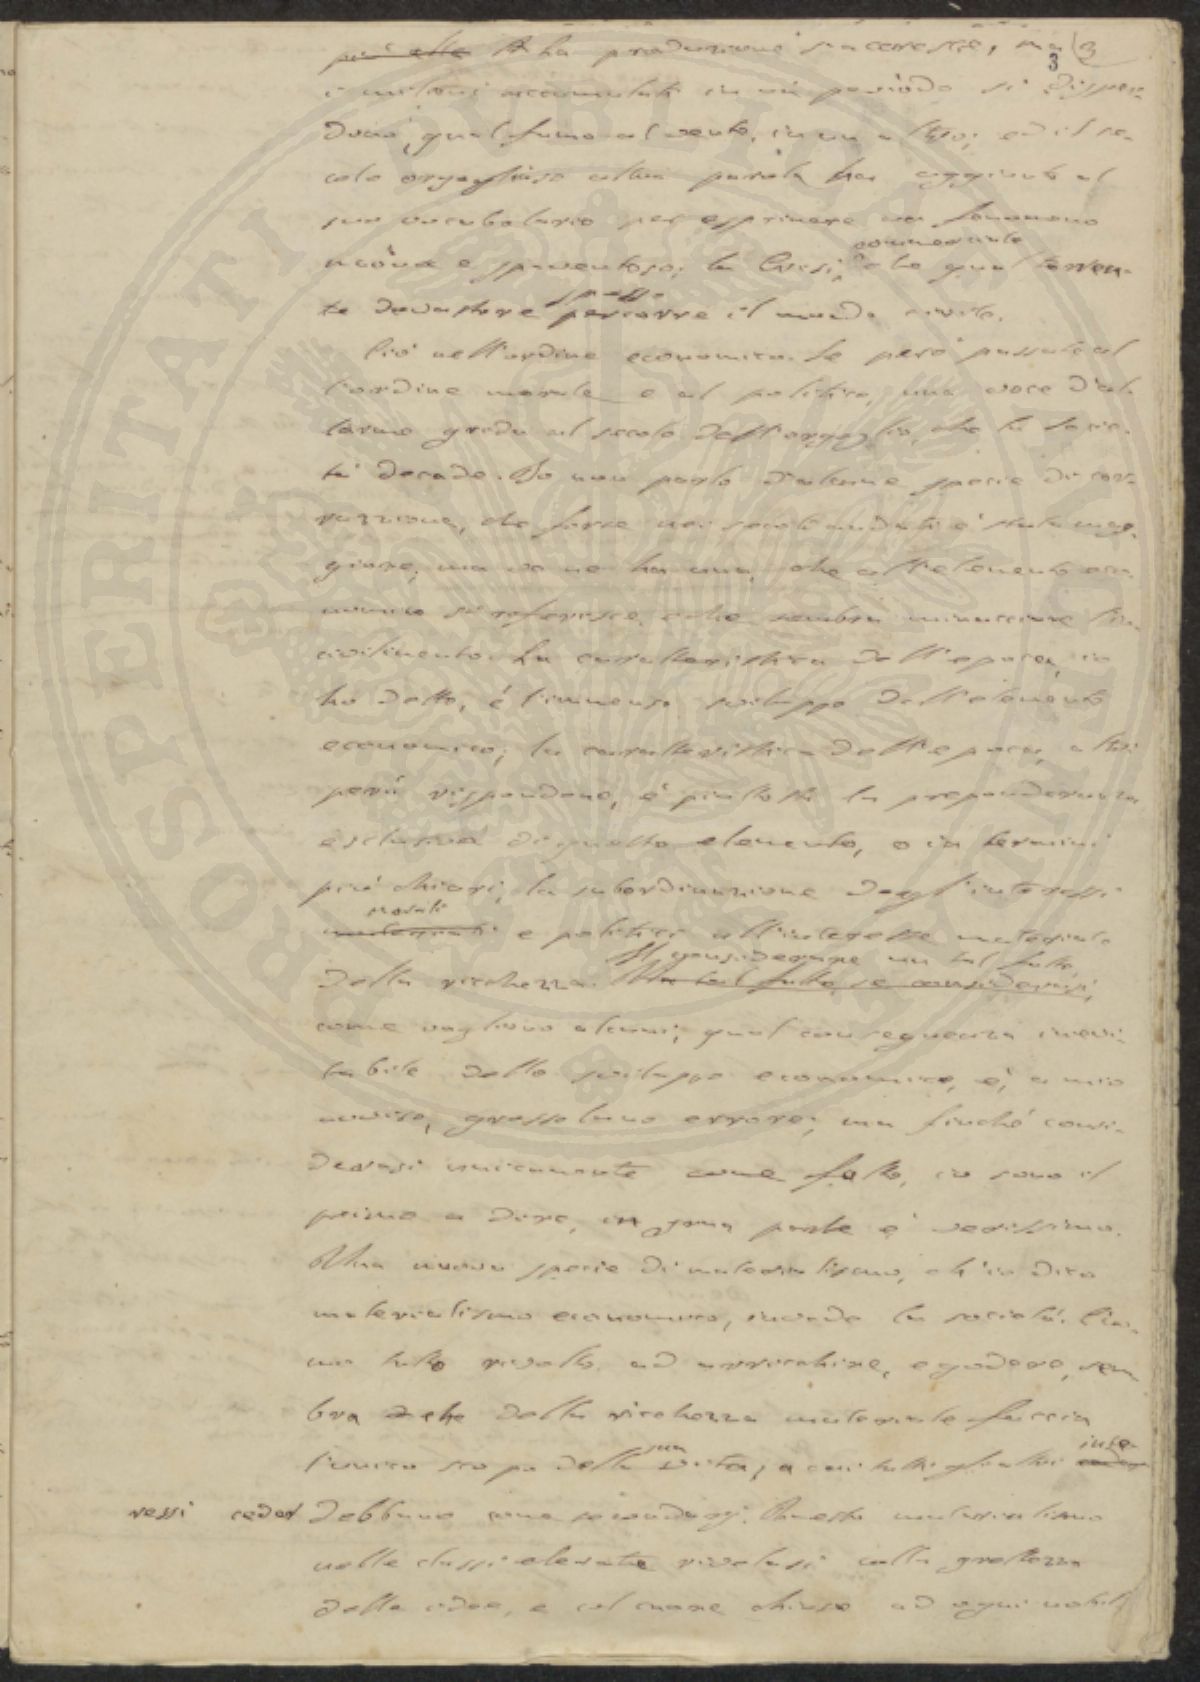 più che La produzione s'accresce, ma 3
3
i milioni accumulati in un periodo si disper-
dono, qual fumo al vento, in un altro; ed il se-
colo orgoglioso altra parola ha aggiunto al
suo vocabolario per esprimere un fenomeno
nuovo e spaventoso; la Crisi, commerciale che qual torren-
te devastore spesso percorre il mondo civile.
Ciò nell'ordine economico. Se però passate al
l'ordine morale e al politico, una voce d'al-
larme grida al secolo dell'orgoglio, che la socie-
tà decade. Io non parlo d'alcune specie di cor-
ruzione, che forse nei secoli andati è stata mag-
giore; ma ve ne ha una, che all'elemento eco-
nomico si riferisce, e che sembra minacciare l'in-
civilimento. La caratteristica dell'epoca, io
ho detto, è l'immenso sviluppo dell'elemento
economico; la caratteristica dell'epoca, altri
però rispondono, è piuttosto la preponderanza
esclusiva di questo elemento, o in termini
più chiari, la subordinazione degl'interessi
morali
materiali e politici all'interesse materiale
Il considerare un tal fatto,
della ricchezza. Un tal fatto, se considerasi,
come vogliono alcuni, qual conseguenza inevi-
tabile dello sviluppo economico, è, a mio
avviso, grossolano errore; ma finché consi-
derasi unicamente come fatto, io sono il
primo a dire, in gran parte è verissimo.
Una nuova specie di materialismo, ch'io dico
materialismo economico, invade la società. L'uo-
mo tutto rivolto ad arricchire, e godere, sem-
bra che della ricchezza materiale faccia
l'unico scopo della sua vita, a cui tutti gli altri inte-
ressi ceder debbono come secondarj. Questo materialismo
nelle classi elevate rivelasi colla grettezza
delle idee, e col cuore chiuso ad ogni nobil
PROSPERITATI PUBLICAE